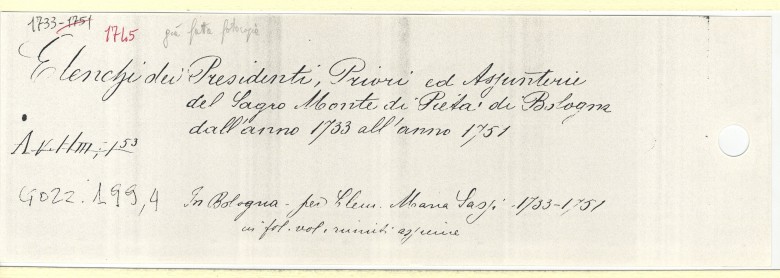 1733-1751
1745 già fatta fotocopia
Elenchi dei Presidenti, Priori ed Assunterie
del Sagro Monte di Pietà di Bologna
dall'anno 1733 all'anno 1751
A.V.
GOZZ. 199,4
In Bologna - per Clem. Maria Sassi - 1733-1751
in fol. vol.